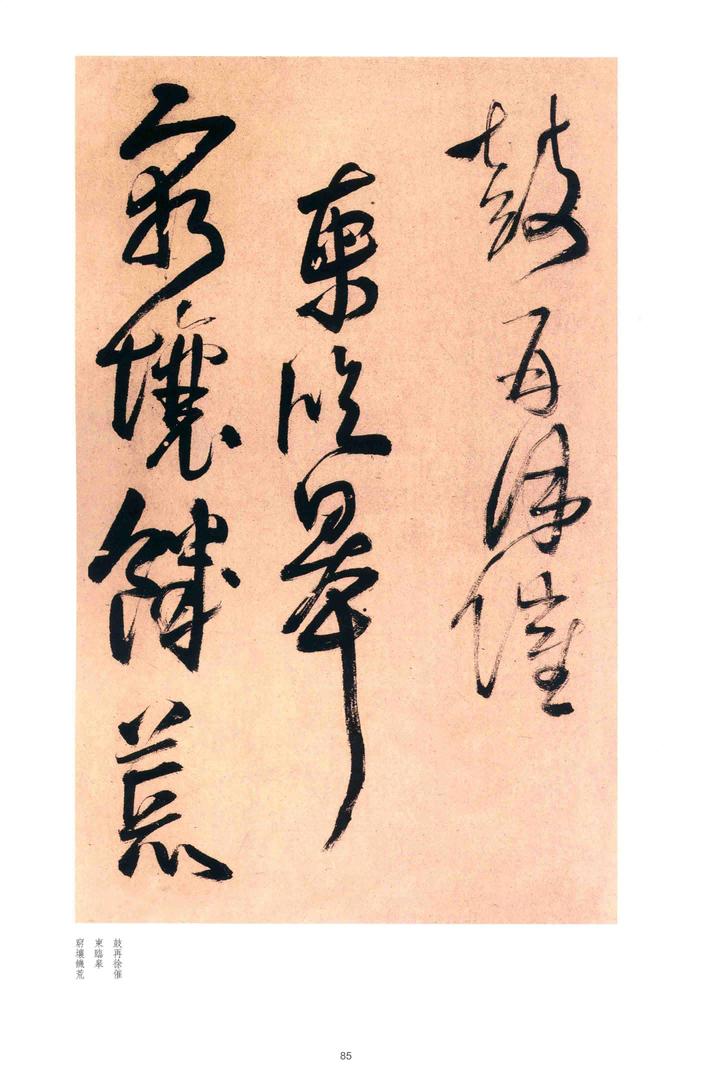 鼓再徐催
東臨皋
窮壤饑荒
鼓再徐催
東臨皋
窮壤饑荒
85